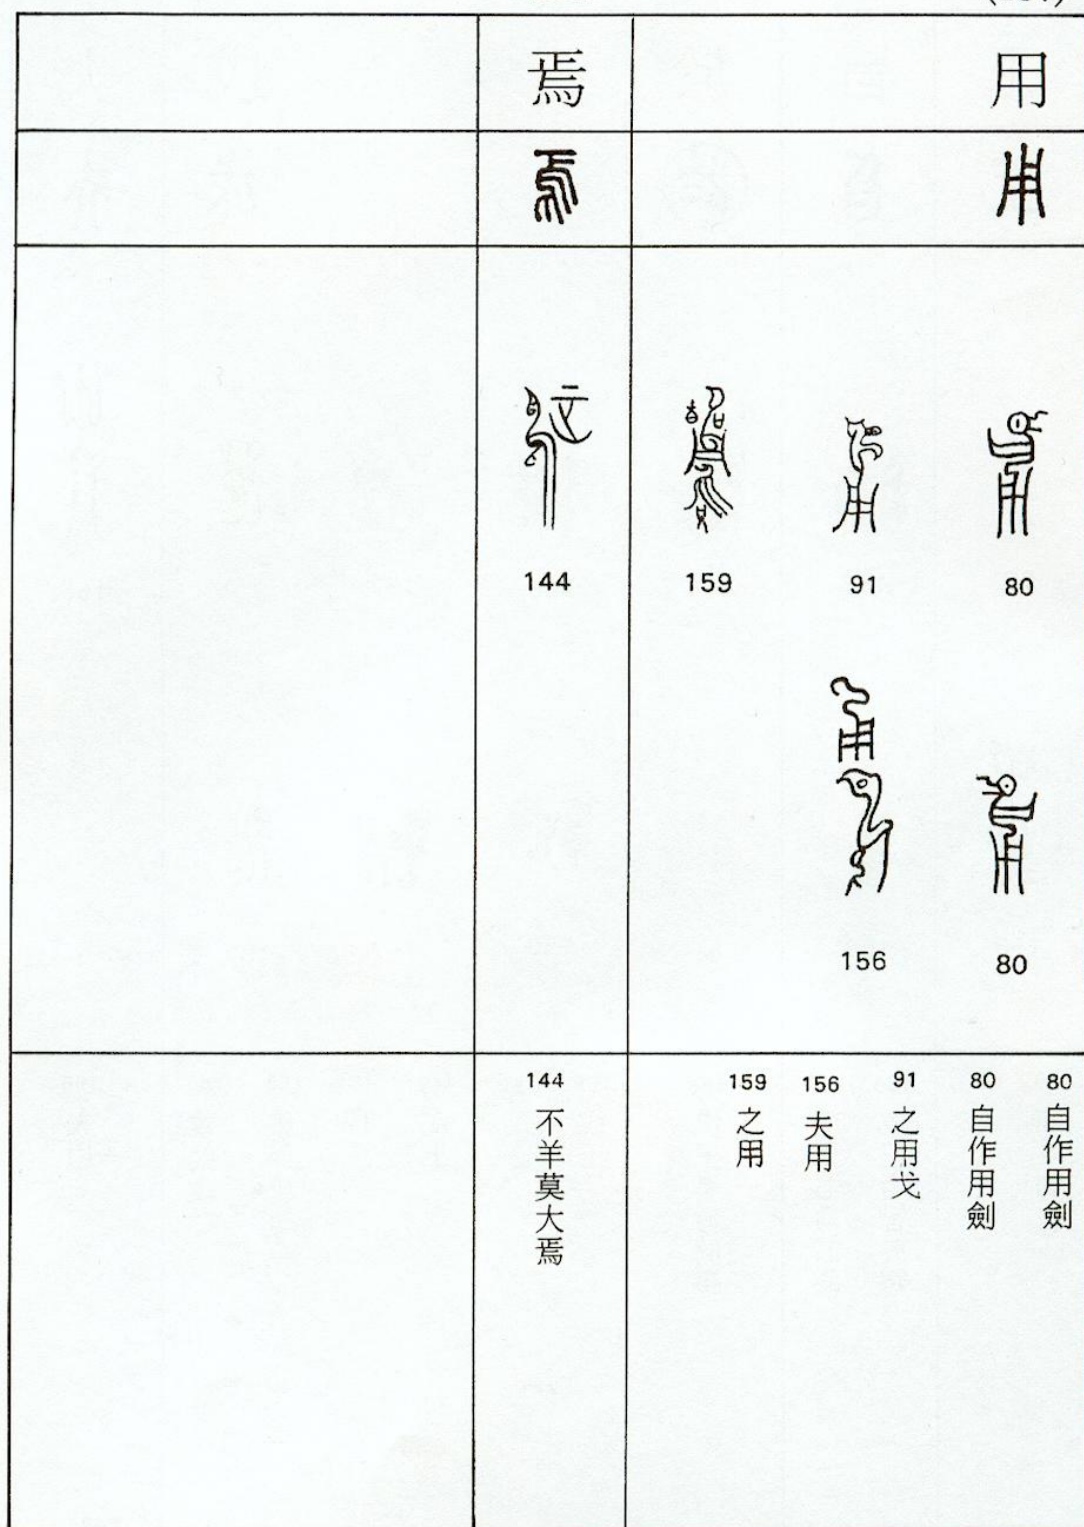 用
焉
80
91
159
144
80
156
80 自作用劍
80 自作用劍
91 之用戈
156 夫用
159 之用
144 不羊莫大焉